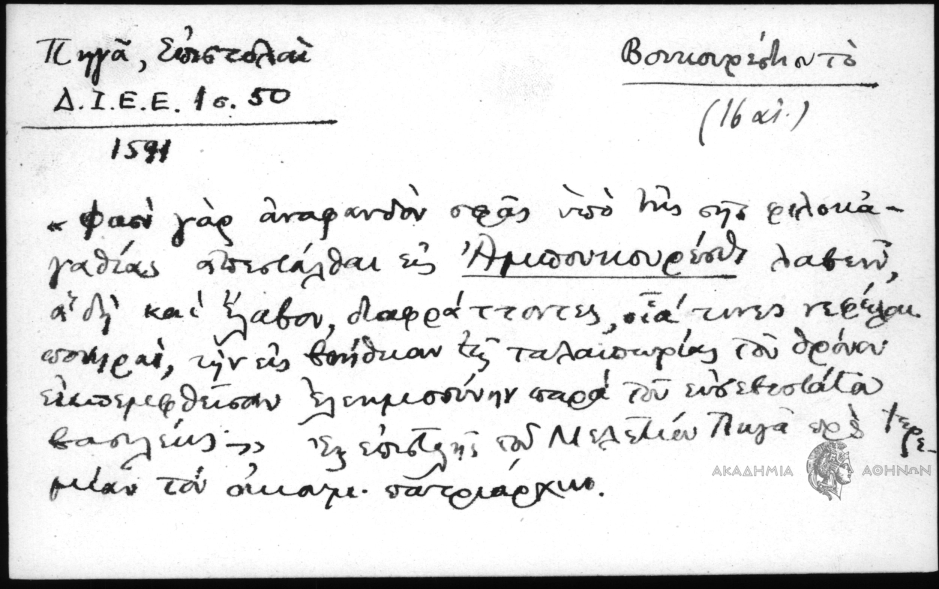 Πηγᾶ, Ἐπιστολαὶ
Δ.Ι.Ε.Ε. 1 σ. 50
1591
Βουκουρέστι τὸ
(16 αἰ.)
« Φασὶ γὰρ ἀναφανδὸν σφᾶς ὑπὸ τῆς σῆς φιλοκα-
γαθίας ἀπεστάλθαι εἰς Ἀμπουκουρέστι λαβεῖν,
ἃ δὴ καὶ ἔλαβον, διαφράττοντες, οἷά τινες νεφέλαι
πονηραί, τὴν εἰς βοήθειαν τῆς ταλαιπωρίας τοῦ θρόνου
ἐκπεμφθεῖσαν ἐλεημοσύνην παρὰ τοῦ εὐσεβεστάτου
βασιλέως ». Ἐξ ἐπιστολῆς τοῦ Μελετίου Πηγᾶ πρὸς Ἱερε-
μίαν τὸν οἰκουμ. πατριάρχην.
ΑΚΑΔΗΜΙΑ ΑΘΗΝΩΝ